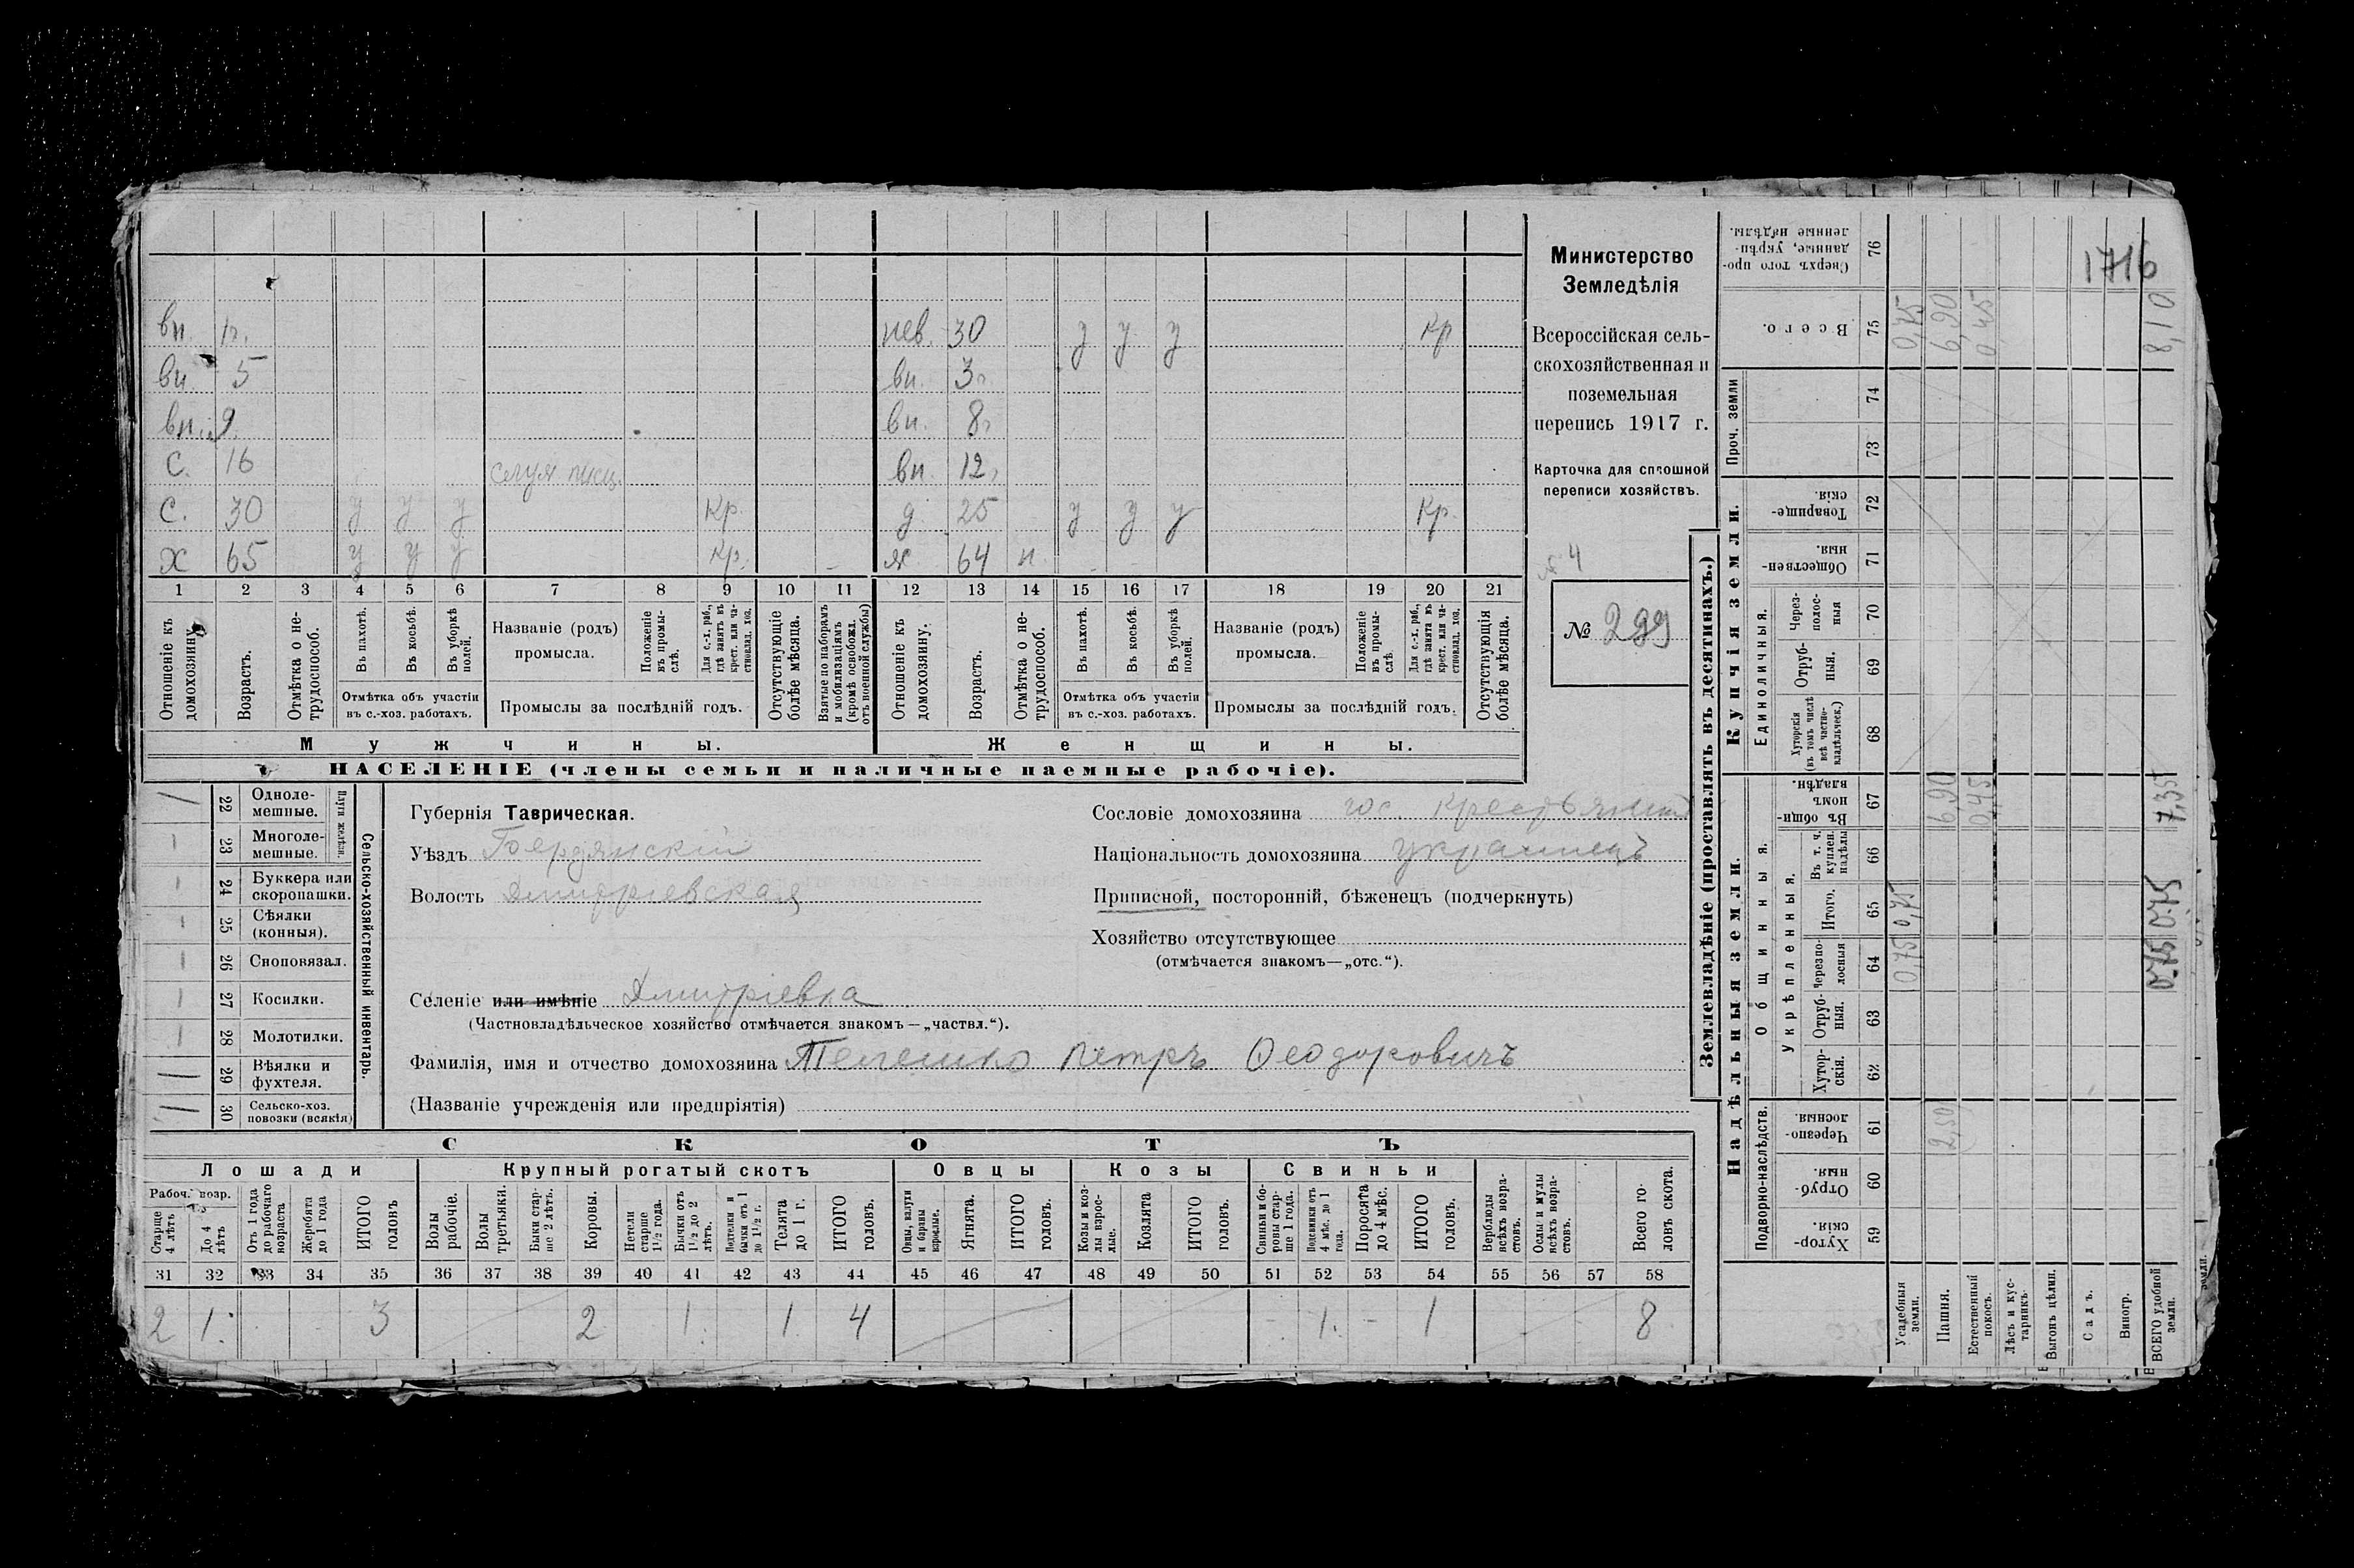 1716
вн. 1г. нев. 30 у у у кр
вн. 5 вн. 3г.
вн. 9 вн. 8г
С. 16 вн. 12,
С. 30 у у у Кр. д. 25 у у у Кр.
Х 65 у у у Кр. ж. 64 н.
1 2 3 4 5 6 7 8 9 10 11 12 13 14 15 16 17 18 19 20 21
Отношеніе къ домохозяину.
Возрастъ.
Отмѣтка о не-
трудоспособ.
Въ пахотѣ.
Въ косьбѣ.
Въ уборкѣ
полей.
Отмѣтка объ участіи
въ с.-хоз. работахъ.
Названіе (родъ)
промысла.
Положеніе
въ промы-
слѣ.
Для с.-х. раб.,
гдѣ занятъ въ
крест. или ча-
стновлад. хоз.
Промыслы за послѣдній годъ.
Отсутствующіе
болѣе мѣсяца.
Взятые по наборамъ
и мобилизаціямъ
(кромѣ освобожд.
отъ военной службы)
Отношеніе къ
домохозяину.
Возрастъ.
Отмѣтка о не-
трудоспособ.
Въ пахотѣ.
Въ косьбѣ.
Въ уборкѣ
полей.
Отмѣтка объ участіи
въ с.-хоз. работахъ.
Названіе (родъ)
промысла.
Положеніе
въ промы-
слѣ
Для с.-х. раб.,
гдѣ занята въ
крест. или ча-
стновлад. хоз.
Промыслы за послѣдній годъ.
Отсутствующія
болѣе мѣсяца.
Мужчины. Женщины.
НАСЕЛЕНІЕ (члены семьи и наличные наемные рабочіе).
Министерство
Земледѣлія
Всероссійская сель-
скохозяйственная и
поземельная
перепись 1917 г.
Карточка для сплошной
переписи хозяйствъ.
4
№ 299
22 Одноле-
мешные.
23 Многоле-
мешные.
Плуги желѣзн.
24 Буккера или
скоропашки.
25 Сѣялки
(конныя).
26 Сноповязал.
27 Косилки.
28 Молотилки.
29 Вѣялки и
фухтеля.
30 Сельско-хоз.
повозки (всякія)
Сельско-хозяйственный инвентарь.
Губернія Таврическая.
Уѣздъ Бердянскій
Волость Дмитріевская
Селеніе или имѣніе Дмитріевка
(Частновладѣльческое хозяйство отмѣчается знакомъ—„частвл.“).
Фамилія, имя и отчество домохозяина Телешко Петръ Ѳеодоровичъ
(Названіе учрежденія или предпріятія)
Сословіе домохозяина гос. крестьянинъ
Національность домохозяина украинецъ
Приписной, посторонній, бѣженецъ (подчеркнуть)
Хозяйство отсутствующее
(отмѣчается знакомъ—„отс.“).
СКОТЪ
Лошади Крупный рогатый скотъ Овцы Козы Свиньи
Рабоч. возр.
Старше
4 лѣтъ
До 4
лѣтъ
Отъ 1 года
до рабочаго
возраста
Жеребята
до 1 года
ИТОГО
головъ
Волы
рабочіе.
Волы
третьяки.
Быки стар-
ше 2 лѣтъ.
Коровы.
Нетели
старше
1½ года.
Бычки отъ
1½ до 2
лѣтъ.
Подтелки и
бычки отъ 1
до 1½ г.
Телята
до 1 г.
ИТОГО
головъ.
Овцы, валухи
и бараны
взрослые.
Ягнята.
ИТОГО
головъ.
Козы и коз-
лы взрос-
лые.
Козлята
ИТОГО
головъ.
Свиньи и бо-
ровы стар-
ше 1 года.
Подсвинки отъ
4 мѣс. до 1
года.
Поросята
до 4 мѣс.
ИТОГО
головъ.
Верблюды
всѣхъ возра-
стовъ.
Ослы и мулы
всѣхъ возра-
стовъ.
Всего го-
ловъ скота.
31 32 33 34 35 36 37 38 39 40 41 42 43 44 45 46 47 48 49 50 51 52 53 54 55 56 57 58
2 1. 3 2 1. 1. 4 1. 1 8
Землевладѣніе (проставлять въ десятинахъ.)
Надѣльныя земли. Купчія земли.
Подворно-наслѣдств.
Общинныя.
Укрѣпленныя.
Единоличныя.
Проч. земли
59 Хутор-
скія.
60 Отруб-
ныя.
61 Черезпо-
лосныя.
62 Хутор-
скія.
63 Отруб-
ныя.
64 Черезпо-
лосныя
65 Итого.
66 Въ т. ч.
куплен.
надѣлы
67 Въ общи-
номъ
владѣн.
68 Хуторскія
(въ томъ числѣ
всѣ частно-
владѣльческ.)
69 Отруб-
ныя.
70 Через-
полос-
ныя
71 Обществен-
ныя.
72 Товарище-
скія.
73
74
75 Всего.
76 Сверхъ того про-
данные, укрѣп-
ленные надѣлы.
Усадебныя
земли. 0,75 0,75 0,75
Пашня. 2,50 6,90 6,90
Естественный
покосъ. 0,45 0,45
Лѣсъ и кус-
тарникъ.
Выгонъ цѣлин.
Садъ.
Виногр.
ВСЕГО удобной
земли. 0.75 0.75 7,35 8,10
земли.